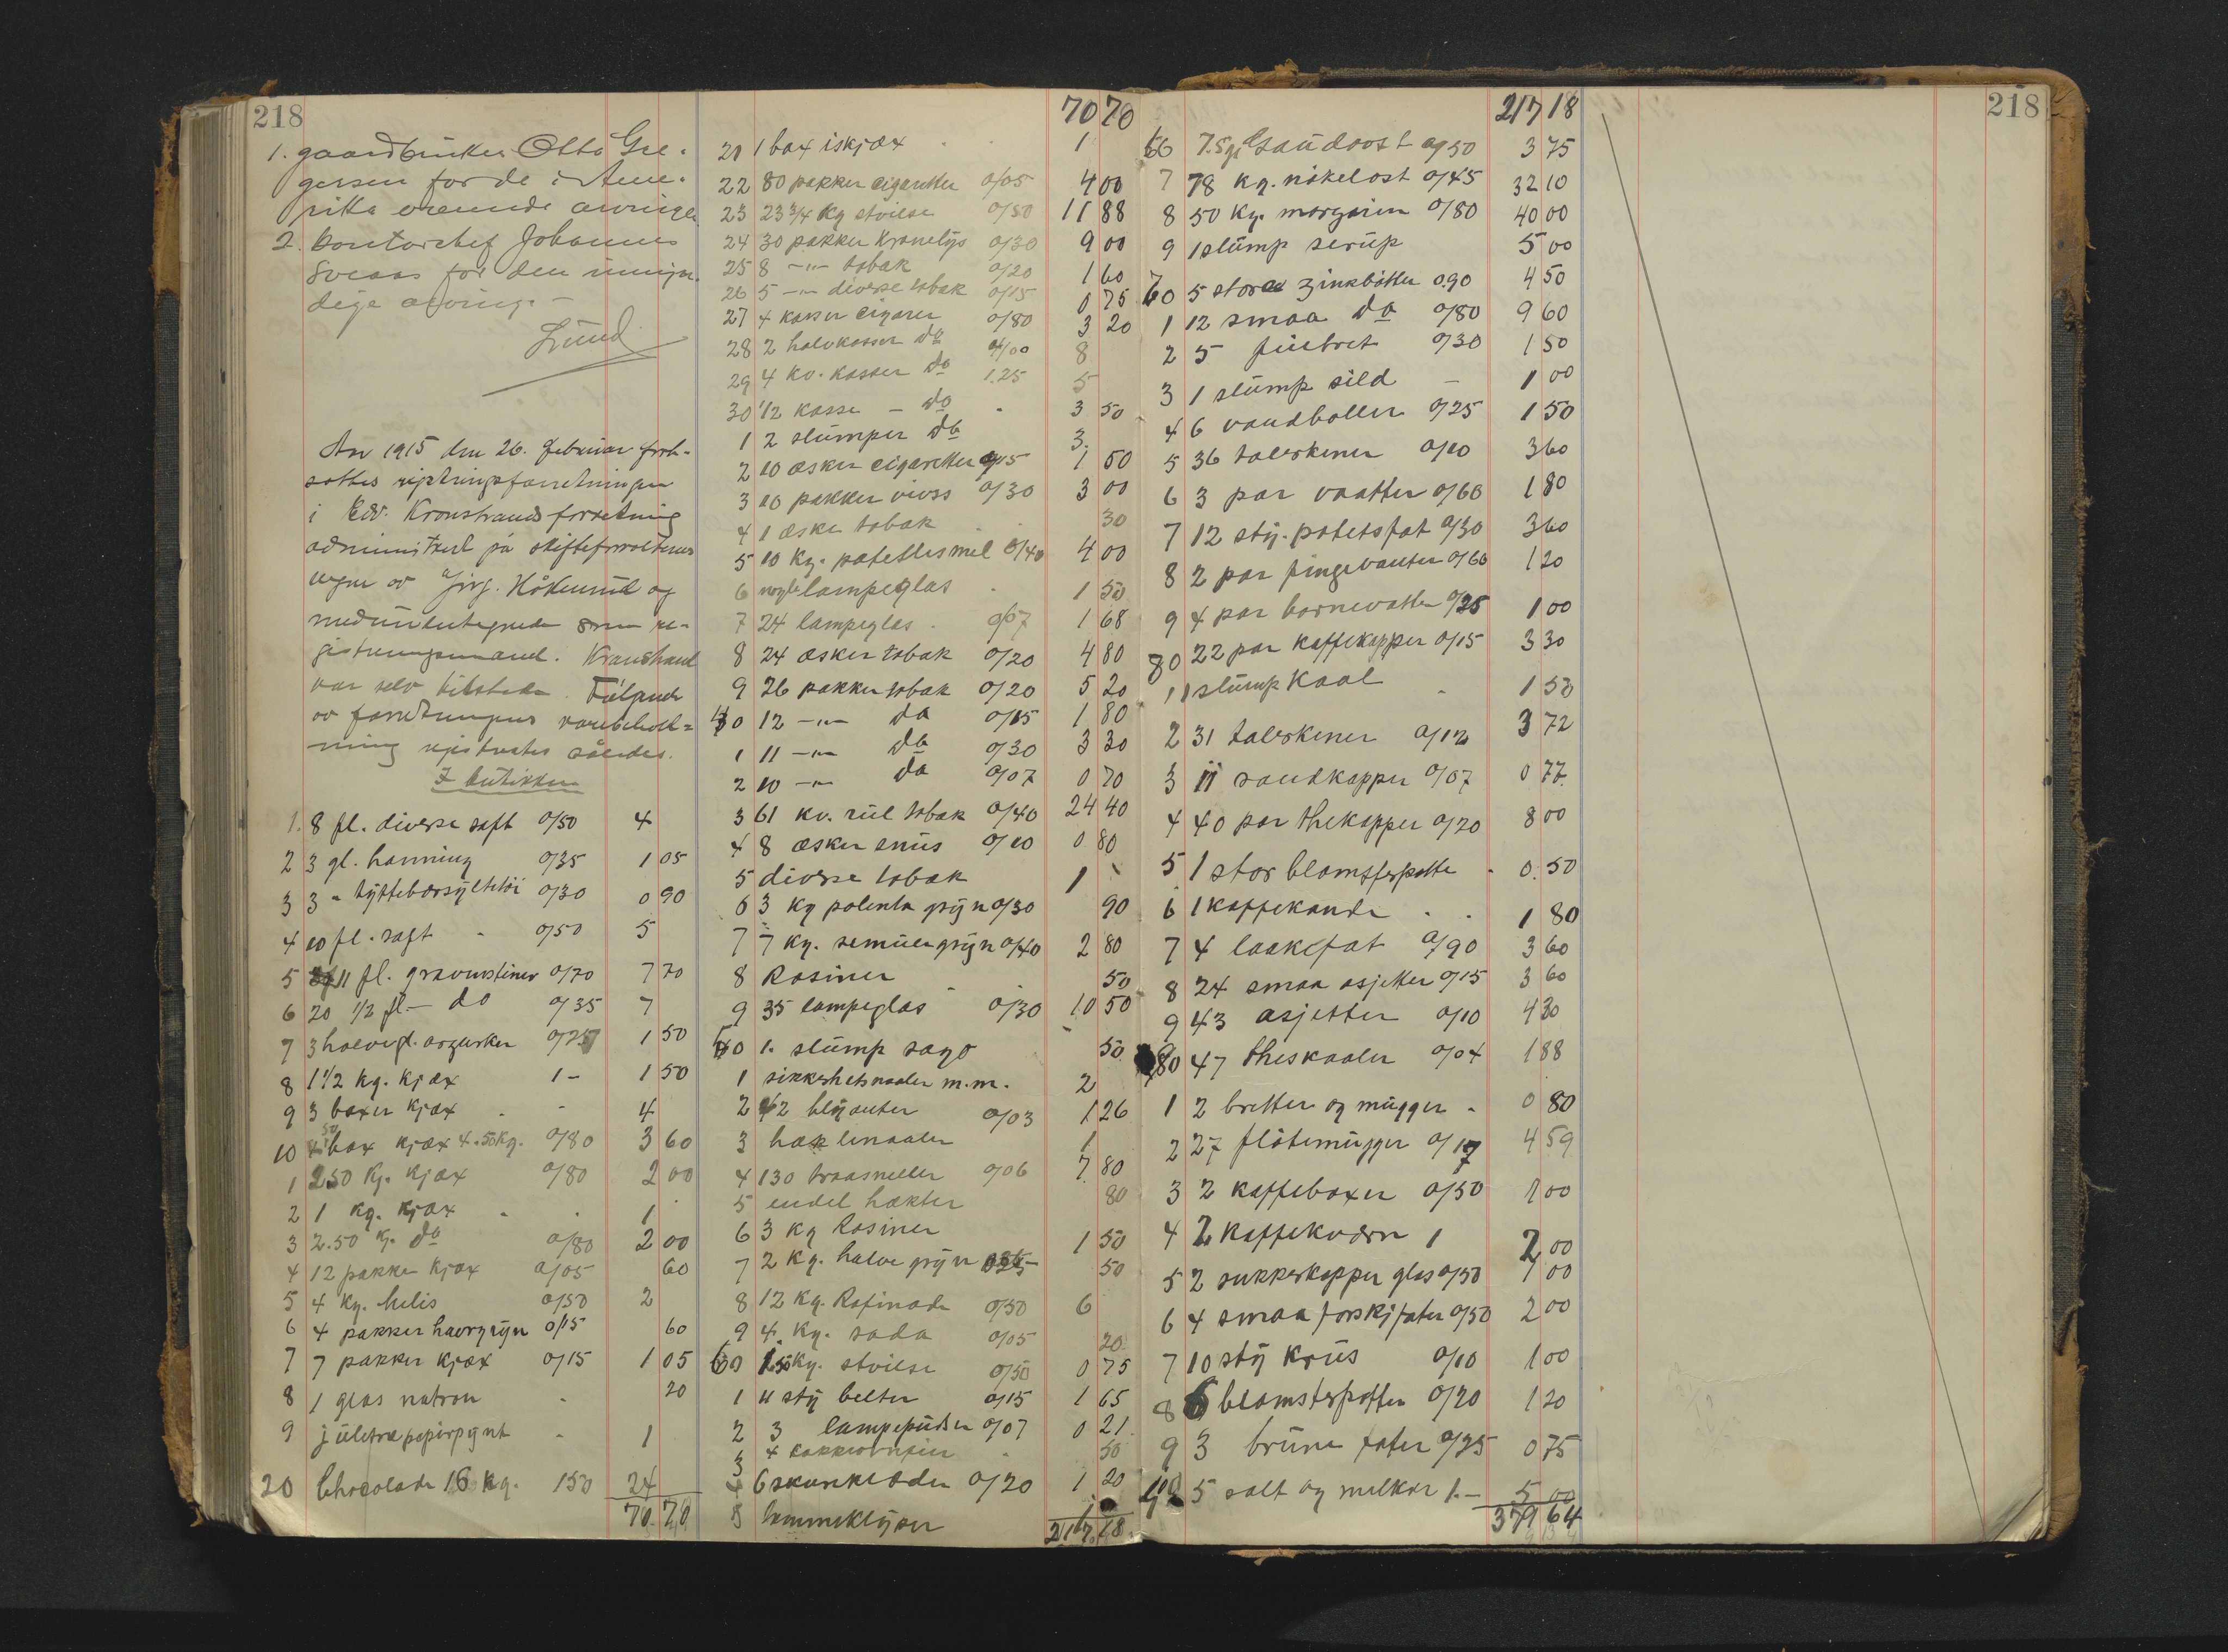 218
1. gaardbruker Otto Gre-
gersen for de i Ame-
rika værende arvinge
2. kontorchef Johannes
Sveaas for den umyn-
dige arving. -
Lund
Aar 1915 den 26. februar fort-
sattes registringsforretningen
i Edv. Kronstrands forretning
administrert på skifteforvalterens
vegne av Jørg. Håkenrud og
medundertegnede som re-
gistreringsmand. Kronstrand
var selv tilstede. Følgende
av forretningens varebehold-
ning registrertes således.
I butikken
1. 8 fl. diverse saft a/50 4
2 3 gl. honning a/35 1 05
3 3 " tyttebærsyltetøi a/30 0 90
4 10 fl. saft - a/50 5
5 11 fl. gravensteiner a/70 7 70
6 20 1/2 fl - do a/35 7
7 3 halvegl. asgurker 1 50
8 1 1/2 kg. kjæx 1- 1 50
9 3 boxer kjæx - 4
10 box kjæx 4.50 kg. a/80 3 60
1 2.50 kg. kjæx a/80 2 00
2 1 kg. kjæx - 1
3 2.50 kg. do a/80 2 00
4 12 pakker kjæx a/05 60
5 4 kg. melis a/50 2
6 4 pakker havregryn a/15 60
7 7 pakker kjæx a/15 1 05
8 1 glas natron - 20
9 juletræpapirpynt - 1
20 Chocolade 16 kg. 150 24
70 70
70 70
21 1 box iskjæx 1
22 80 pakker cigaretter a/05 4 00
23 23 3/4 kg stivelse a/50 11 88
24 30 pakker kronelys a/30 9 00
25 8 -"- tobak a/20 1 60
26 5 -"- diverse tobak a/15 0 75
27 4 kasser cigarer a/80 3 20
28 2 halvkasser do 4/00 8
29 4 kv. kasser do 1.25 5
30 1/2 kasse - do - 3 50
1 2 slumper do 3.
2 10 æsker cigaretter a/15 1 50
3 10 pakker virss a/30 3 00
4 1 æske tobak 30
5 10 kg. potetesmel a/40 4 00
6 nogle lampeglas 1 50
7 24 lampeglas a/07 1 68
8 24 æsker tobak a/20 4 80
9 26 pakker tobak a/20 5 20
40 12 -"- do a/15 1 80
1 11 -"- do a/30 3 30
2 10 -"- do a/07 0 70
3 61 kv. rul tobak a/40 24 40
4 8 æsker snus a/10 0 80
5 diverse tobak 1 -
6 3 kg polenta gryn a/30 90
7 7 kg. semulegryn a/40 2 80
8 Rosiner - 50
9 35 lampeglas a/30 10 50
50 1. slump sago 50
1 sikkerhetsnaaler m.m. 2
2 42 blyanter a/03 1 26
3 hæklenaaler 1
4 130 traasneller a/06 7 80
5 endel hækter 80
6 3 kg Rosiner 1 50
7 2 kg. halve gryn 50
8 12 kg. Rafinade a/50 6
9 4 kg. soda a/05 20
60 1.50 kg. stivelse a/50 0 75
1 11 sty belter a/15 1 65
2 3 lampepudser a/07 0 21
3 4 50
4 6 skureklæder a/20 1 20
5 lommeklyper 1
217 18
217 18
66 7.5 kg Gaudaost a/50 3 75
7 78 kg. nøkelost a/45 32 10
8 50 kg. margarin a/80 40 00
9 1 slump serup 5 00
70 5 store zinkbøtter 0.90 4 50
1 12 smaa do a/80 9 60
2 5 fuebret a/30 1 50
3 1 slump sild - 1 00
4 6 vandboller a/25 1 50
5 36 talerkener a/10 3 60
6 3 par vaatter a/60 1 80
7 12 sty. potetsfat a/30 3 60
8 2 par fingevanter a/60 1 20
9 4 par barnevatter a/25 1 00
80 22 par kaffekopper a/15 3 30
1 1 slump Kaal - 1 50
2 31 talerkener a/12 3 72
3 11 sandkopper a/07 0 77
4 40 par thekopper a/20 8 00
5 1 stor blomsterpotte - 0.50
6 1 kaffekande - - 1 80
7 4 laakefat a/90 3 60
8 24 smaa asjetter a/15 3 60
9 43 asjetter a/10 4 30
90 47 theskaaler a/04 1 88
1 2 bretter og mugger - 0 80
2 27 fløtemugger a/17 4 59
3 2 kaffeboxer a/50 1 00
4 2 kaffekværn 1 2 00
5 2 sukkerkopper glas a/50 1 00
6 4 smaa forskj fater a/50 2 00
7 10 sty krus a/10 1 00
8 6 blomsterpotter a/20 1 20
9 3 brune fater a/25 0 75
5 salt og melkar 1.- 5 00
379 64
218